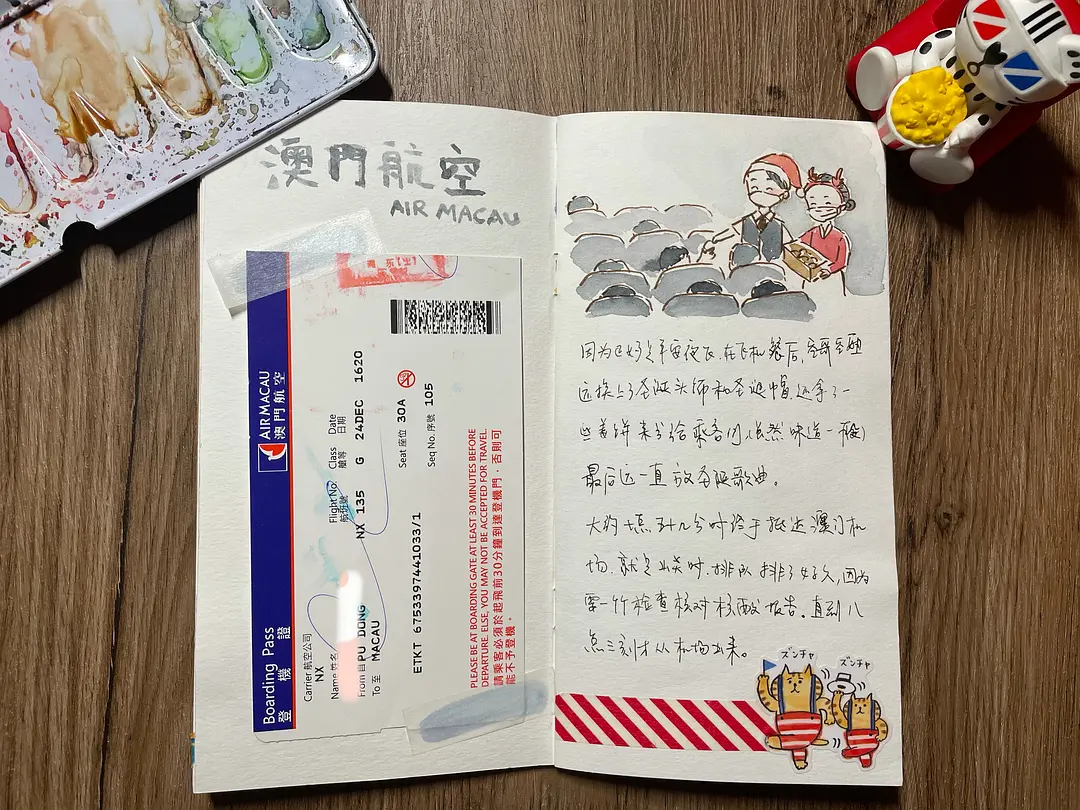 澳門航空
AIR MACAU
AIR MACAU
澳門航空
Boarding Pass
登機證
Carrier 航空公司
NX
Name 姓名
Flight No. 航班號
NX 135
Class 艙等
G
Date 日期
24DEC 1620
From 自 PU DONG
To 至 MACAU
Seat 座位 30A
Seq No. 序號 105
ETKT 6753397441033/1
PLEASE BE AT BOARDING GATE AT LEAST 30 MINUTES BEFORE
DEPARTURE. ELSE, YOU MAY NOT BE ACCEPTED FOR TRAVEL.
請乘客必須於起飛前30分鐘到達登機門，否則可
能不予登機。
因为正好是平安夜飞.在飞机餐后,空哥空姐
还换上了圣诞头饰和圣诞帽,还拿了一
些姜饼来分给乘客们(虽然味道一般)
最后还一直放圣诞歌曲。
大约七点卅几分时终于抵达澳门机
场.就是出关时.排队排了好久,因为
要一个个检查核对核酸报告.直到八
点三刻才从机场出来。
ズンチャ
ズンチャ